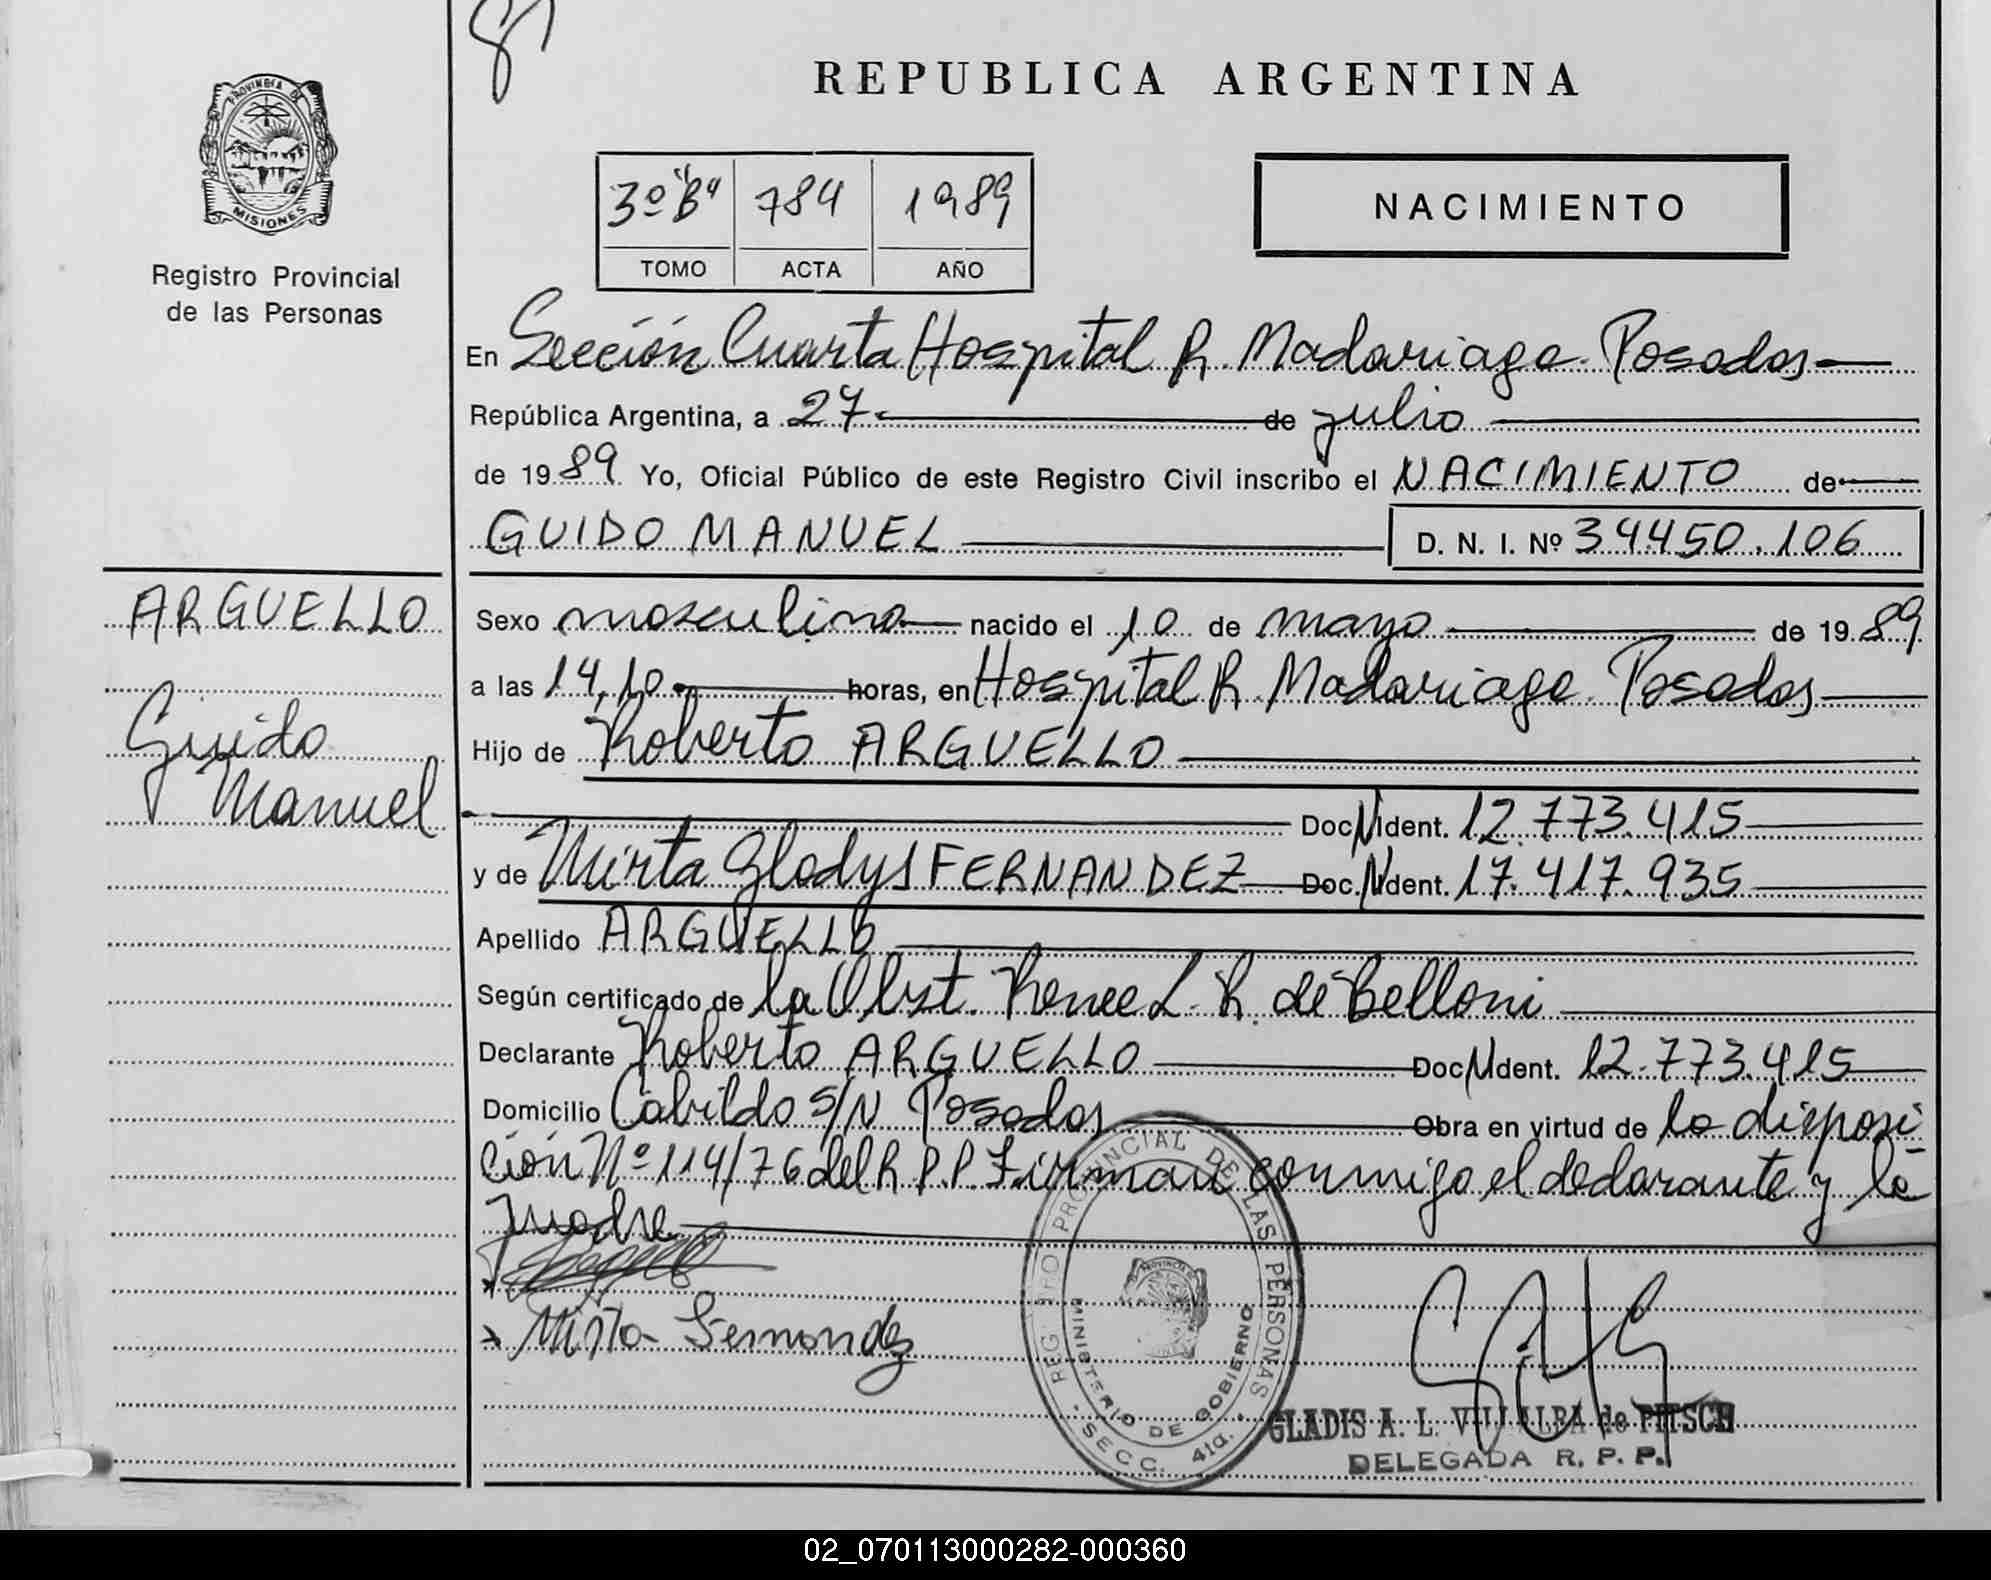 REPUBLICA ARGENTINA
PROVINCIA DE
MISIONES
Registro Provincial
de las Personas
3º "B" 784 1989
TOMO ACTA AÑO
NACIMIENTO
En Sección Cuarta Hospital R. Madariaga. Posadas
República Argentina, a 27 de julio
de 1989 Yo, Oficial Público de este Registro Civil inscribo el NACIMIENTO de
GUIDO MANUEL D. N. I. Nº 34.450.106
ARGUELLO
Guido
Manuel
Sexo masculino nacido el 10 de mayo de 1989
a las 14,10 horas, en Hospital R. Madariaga. Posadas
Hijo de Roberto ARGUELLO
Doc. N. Ident. 12.773.415
y de Mirta Gladys FERNANDEZ Doc. N. Ident. 17.417.935
Apellido ARGUELLO
Según certificado de la Obst. Renee L. R. de Belloni
Declarante Roberto ARGUELLO Doc. N. Ident. 12.773.415
Domicilio Cabildo S/N Posadas Obra en virtud de la disposi
ción Nº 114/76 del R.P.P. Firman conmigo el declarante y la
madre
Mirta Fernandez
REGISTRO PROVINCIAL DE LAS PERSONAS
MINISTERIO DE GOBIERNO
SECC. 4ta.
GLADIS A. L. VILLALBA de PITSCH
DELEGADA R. P. P.
02_070113000282-000360